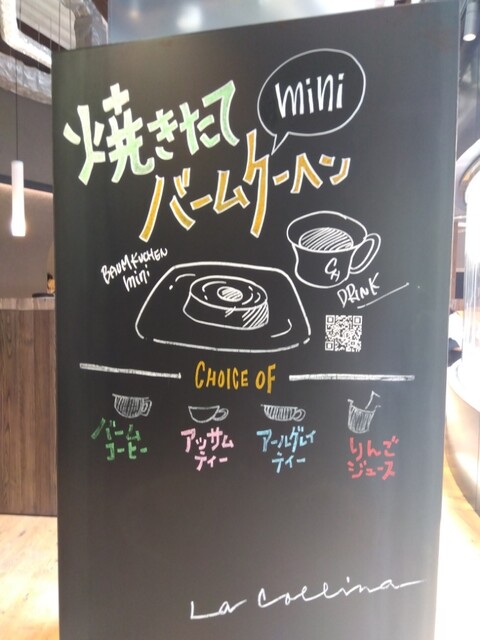 焼きたて
mini
バームクーヘン
BAUMKUCHEN
mini
DRINK
CHOICE OF
バーム
コーヒー
アッサム
ティー
アールグレイ
ティー
りんご
ジュース
La Collina